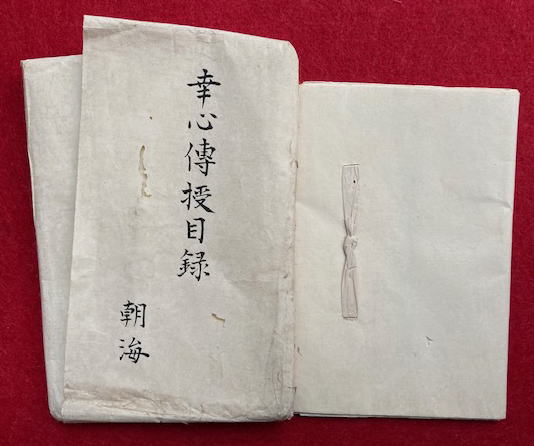 幸心傳授目録
朝海